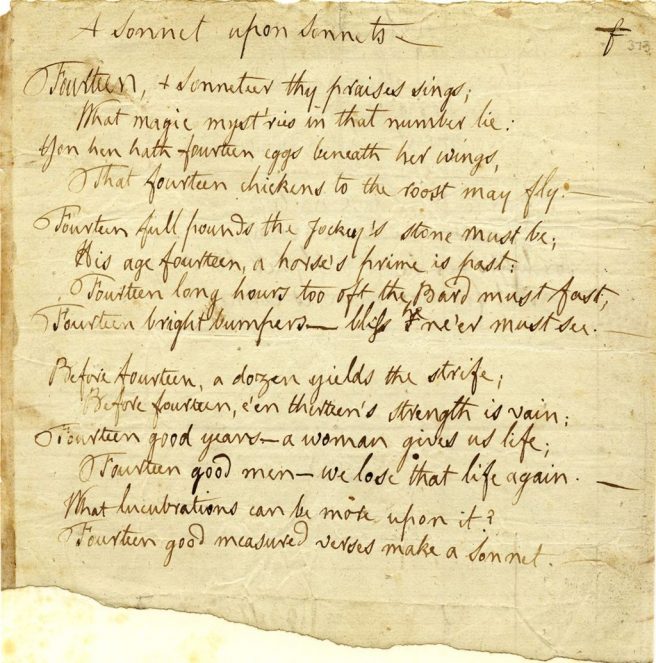 A Sonnet upon Sonnets —
Fourteen, a sonneteer thy praises sings;
What magic myst'ries in that number lie!
Yon hen hath fourteen eggs beneath her wings,
That fourteen chickens to the roost may fly. —
Fourteen full pounds the Jockey's stone must be;
His age fourteen, a horse's prime is past:
Fourteen long hours too oft the Bard must fast;
Fourteen bright bumpers — bliss he ne'er must see. —
Before fourteen, a dozen yields the strife;
Before fourteen, e'en thirteen's strength is vain;
Fourteen good years — a woman gives us life;
Fourteen good men — we lose that life again. —
What lucubrations can be more upon it?
Fourteen good measured verses make a sonnet. —